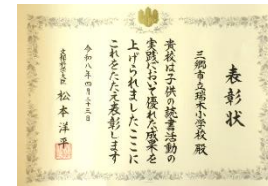 表彰状
三郷市立瑞木小学校 殿
貴校は子供の読書活動の
実践において優れた成果を
上げられましたここに
これをたたえ表彰します
令和八年四月二十三日
文部科学大臣 松本洋平